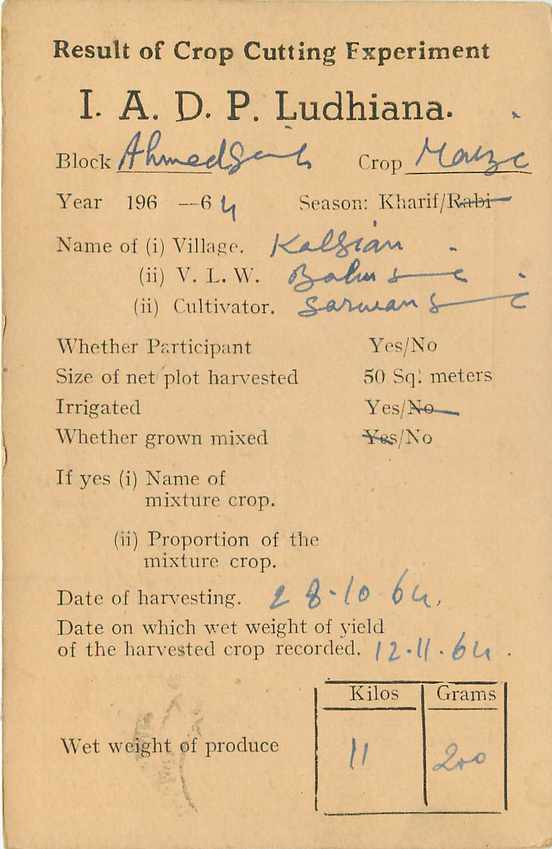 Result of Crop Cutting Experiment
I. A. D. P. Ludhiana.
Block Ahmedgarh Crop Maize
Year 196 —64 Season: Kharif/Rabi
Name of (i) Village. Kalsian
(ii) V. L. W.
(ii) Cultivator. Sarwan S
Whether Participant Yes/No
Size of net plot harvested 50 Sq. meters
Irrigated Yes/No
Whether grown mixed Yes/No
If yes (i) Name of
mixture crop.
(ii) Proportion of the
mixture crop.
Date of harvesting. 28.10.64.
Date on which wet weight of yield
of the harvested crop recorded. 12.11.64.
Kilos Grams
Wet weight of produce 11 200